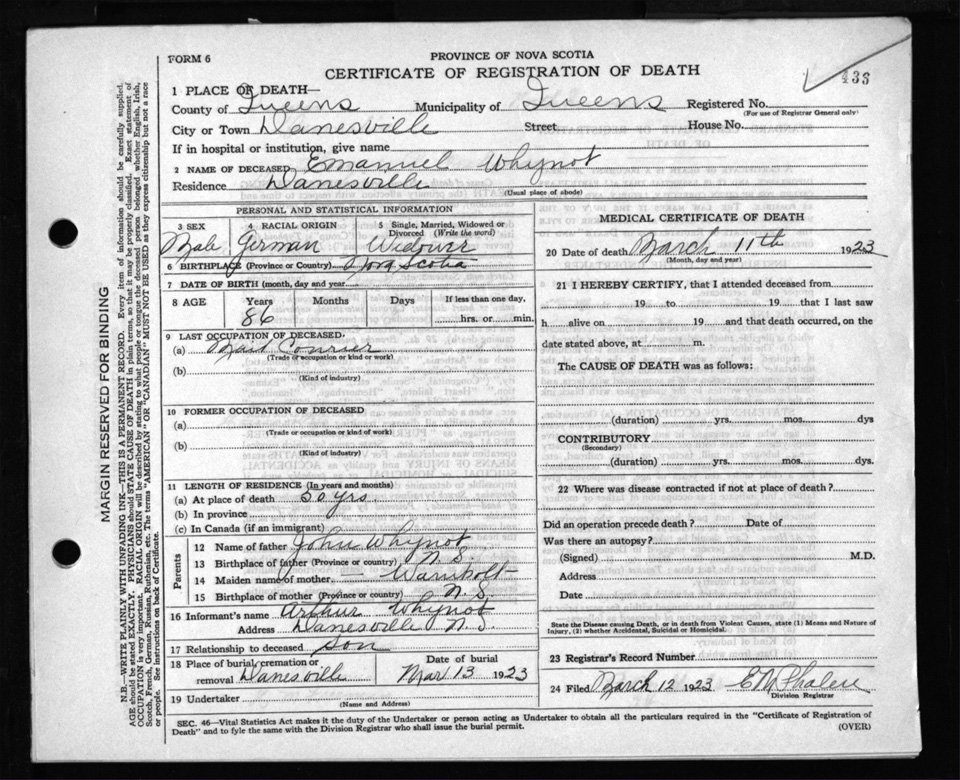 FORM 6
PROVINCE OF NOVA SCOTIA
CERTIFICATE OF REGISTRATION OF DEATH
1 PLACE OF DEATH—
County of Queens Municipality of Queens Registered No.
(For use of Registrar General only)
City or Town Danesville Street House No.
If in hospital or institution, give name
2 NAME OF DECEASED Emanuel Whynot
Residence Danesville
(Usual place of abode)
PERSONAL AND STATISTICAL INFORMATION
3 SEX 4 RACIAL ORIGIN 5 Single, Married, Widowed or Divorced (Write the word)
Male German Widower
6 BIRTHPLACE (Province or Country) Nova Scotia
7 DATE OF BIRTH (month, day and year)
8 AGE Years Months Days If less than one day,
86 hrs. or min.
9 LAST OCCUPATION OF DECEASED.
(a) Mail Courier
(Trade or occupation or kind or work)
(b)
(Kind of industry)
10 FORMER OCCUPATION OF DECEASED
(a)
(Trade or occupation or kind of work)
(b)
(Kind of industry)
11 LENGTH OF RESIDENCE (In years and months)
(a) At place of death 50 yrs
(b) In province
(c) In Canada (if an immigrant)
Parents
12 Name of father John Whynot
13 Birthplace of father (Province or country) N.S.
14 Maiden name of mother — Warnbolt
15 Birthplace of mother (Province or country) N.S.
16 Informant's name Arthur Whynot
Address Danesville N.S.
17 Relationship to deceased Son
18 Place of burial, cremation or removal Danesville Date of burial Mar 13 1923
19 Undertaker
(Name and Address)
MEDICAL CERTIFICATE OF DEATH
20 Date of death March 11th 1923
(Month, day and year)
21 I HEREBY CERTIFY, that I attended deceased from
19 to 19 that I last saw
h alive on 19 and that death occurred, on the
date stated above, at m.
The CAUSE OF DEATH was as follows:
(duration) yrs. mos. dys
CONTRIBUTORY
(Secondary)
(duration) yrs. mos. dys.
22 Where was disease contracted if not at place of death?
Did an operation precede death? Date of
Was there an autopsy?
(Signed) M.D.
Address
Date
State the Disease causing Death, or in death from Violent Causes, state (1) Means and Nature of
Injury, (2) whether Accidental, Suicidal or Homicidal.
23 Registrar's Record Number
24 Filed March 12 1923 E M Phalen
Division Registrar
SEC. 46—Vital Statistics Act makes it the duty of the Undertaker or person acting as Undertaker to obtain all the particulars required in the "Certificate of Registration of
Death" and to fyle the same with the Division Registrar who shall issue the burial permit. (OVER)
MARGIN RESERVED FOR BINDING
N.B.—WRITE PLAINLY WITH UNFADING INK—THIS IS A PERMANENT RECORD. Every item of information should be carefully supplied.
AGE should be stated EXACTLY. PHYSICIANS should STATE CAUSE OF DEATH in plain terms, so that it may be properly classified. Exact statement of
OCCUPATION is very important. RACIAL ORIGIN will be described by stating to what people or tongue the deceased person belonged whether English, Irish,
Scotch, French, German, Russian, Ruthenian, etc. The terms "AMERICAN" OR "CANADIAN" MUST NOT BE USED as they express citizenship but not a race
or people. See instructions on back of Certificate.